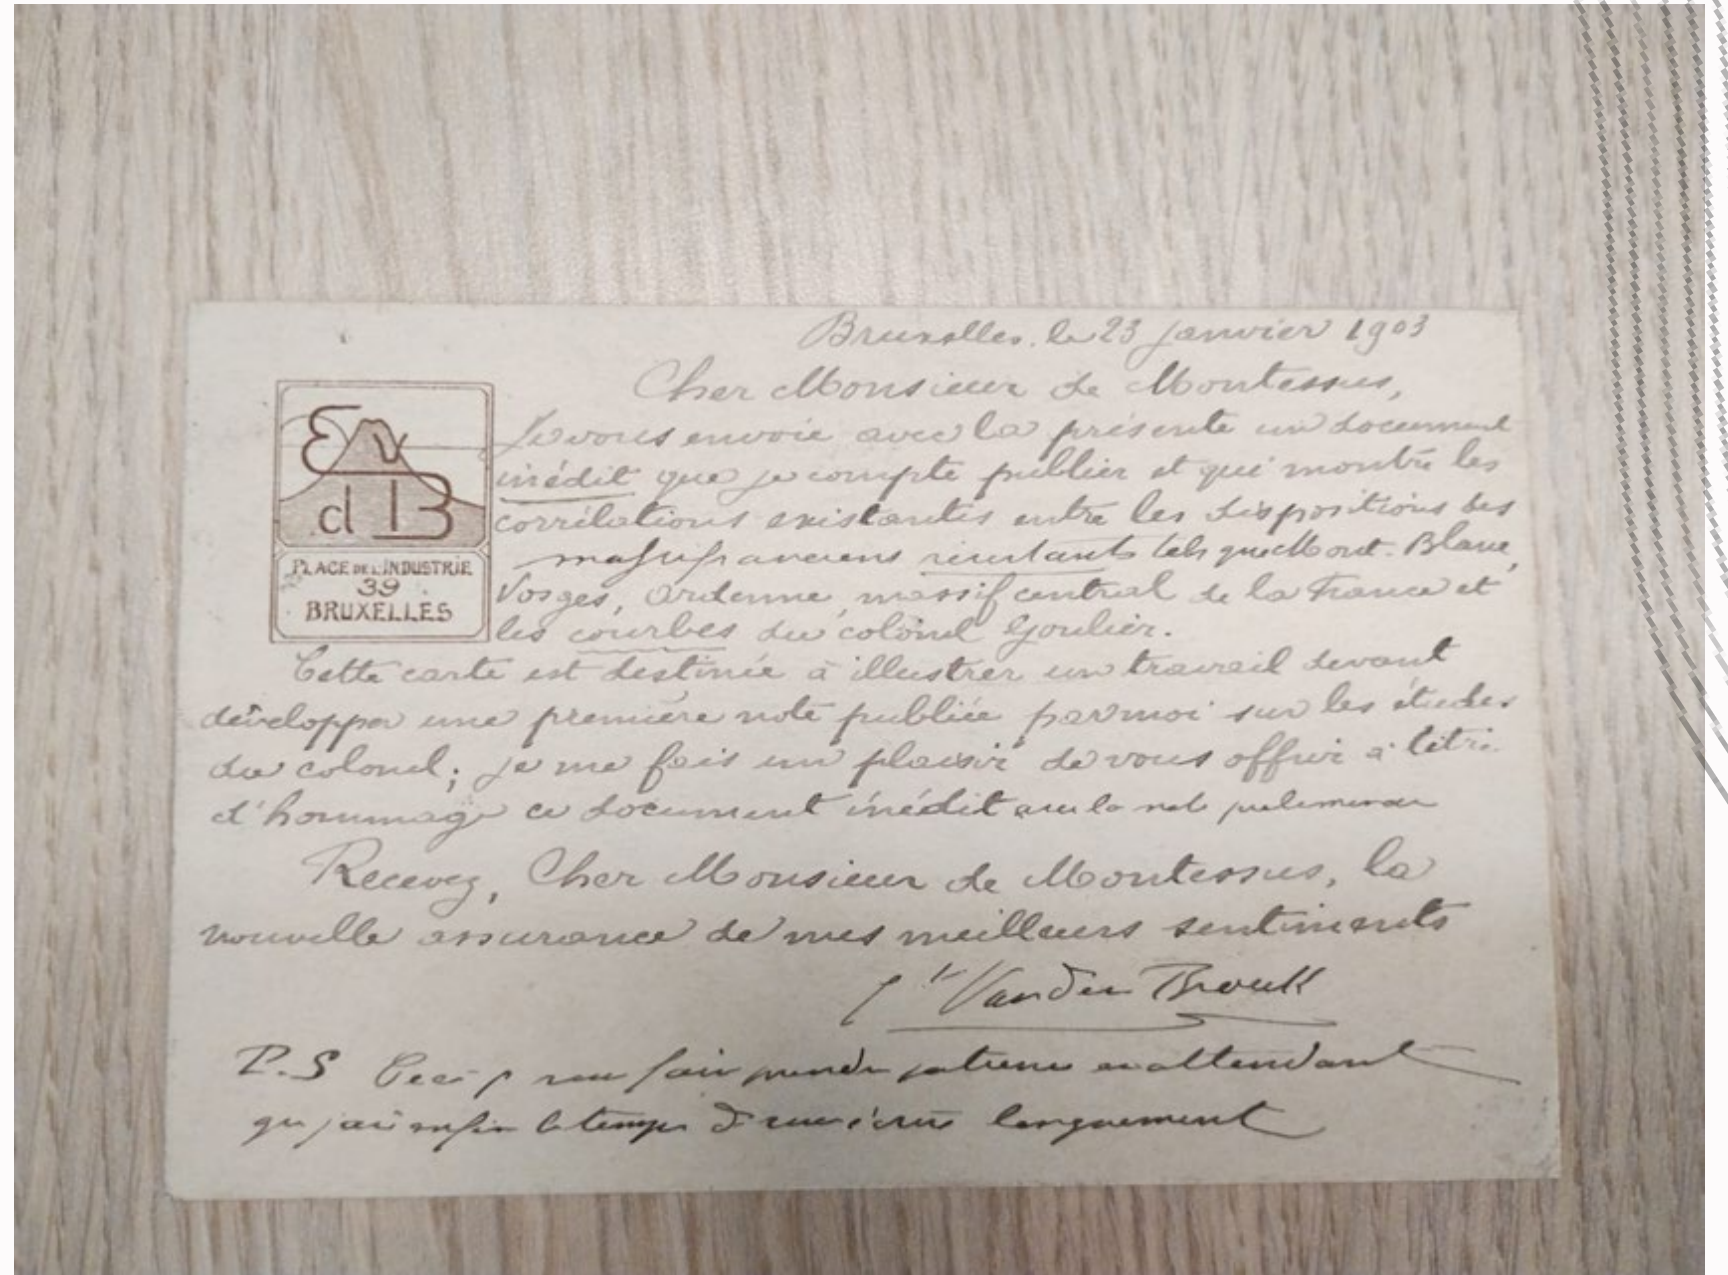 Bruxelles, le 23 janvier 1903
Cher Monsieur de Montessus,
Je vous envoie avec la présente un document
inédit que je compte publier et qui montre les
corrélations existantes entre les dispositions des
massifs anciens résistants tels que Mont-Blanc,
Vosges, Ardenne, massif central de la France et
les courbes du colonel Goulier.
EV
d B
PLACE DE L'INDUSTRIE
39
BRUXELLES
Cette carte est destinée à illustrer un travail devant
développer une première note publiée par moi sur les études
du colonel; je me fais un plaisir de vous offrir à titre
d'hommage ce document inédit avec la note préliminaire
Recevez, Cher Monsieur de Montessus, la
nouvelle assurance de mes meilleurs sentiments
Van den Broeck
P.S Ceci p vous faire prendre patience en attendant
que j'aie enfin le temps de vous écrire longuement